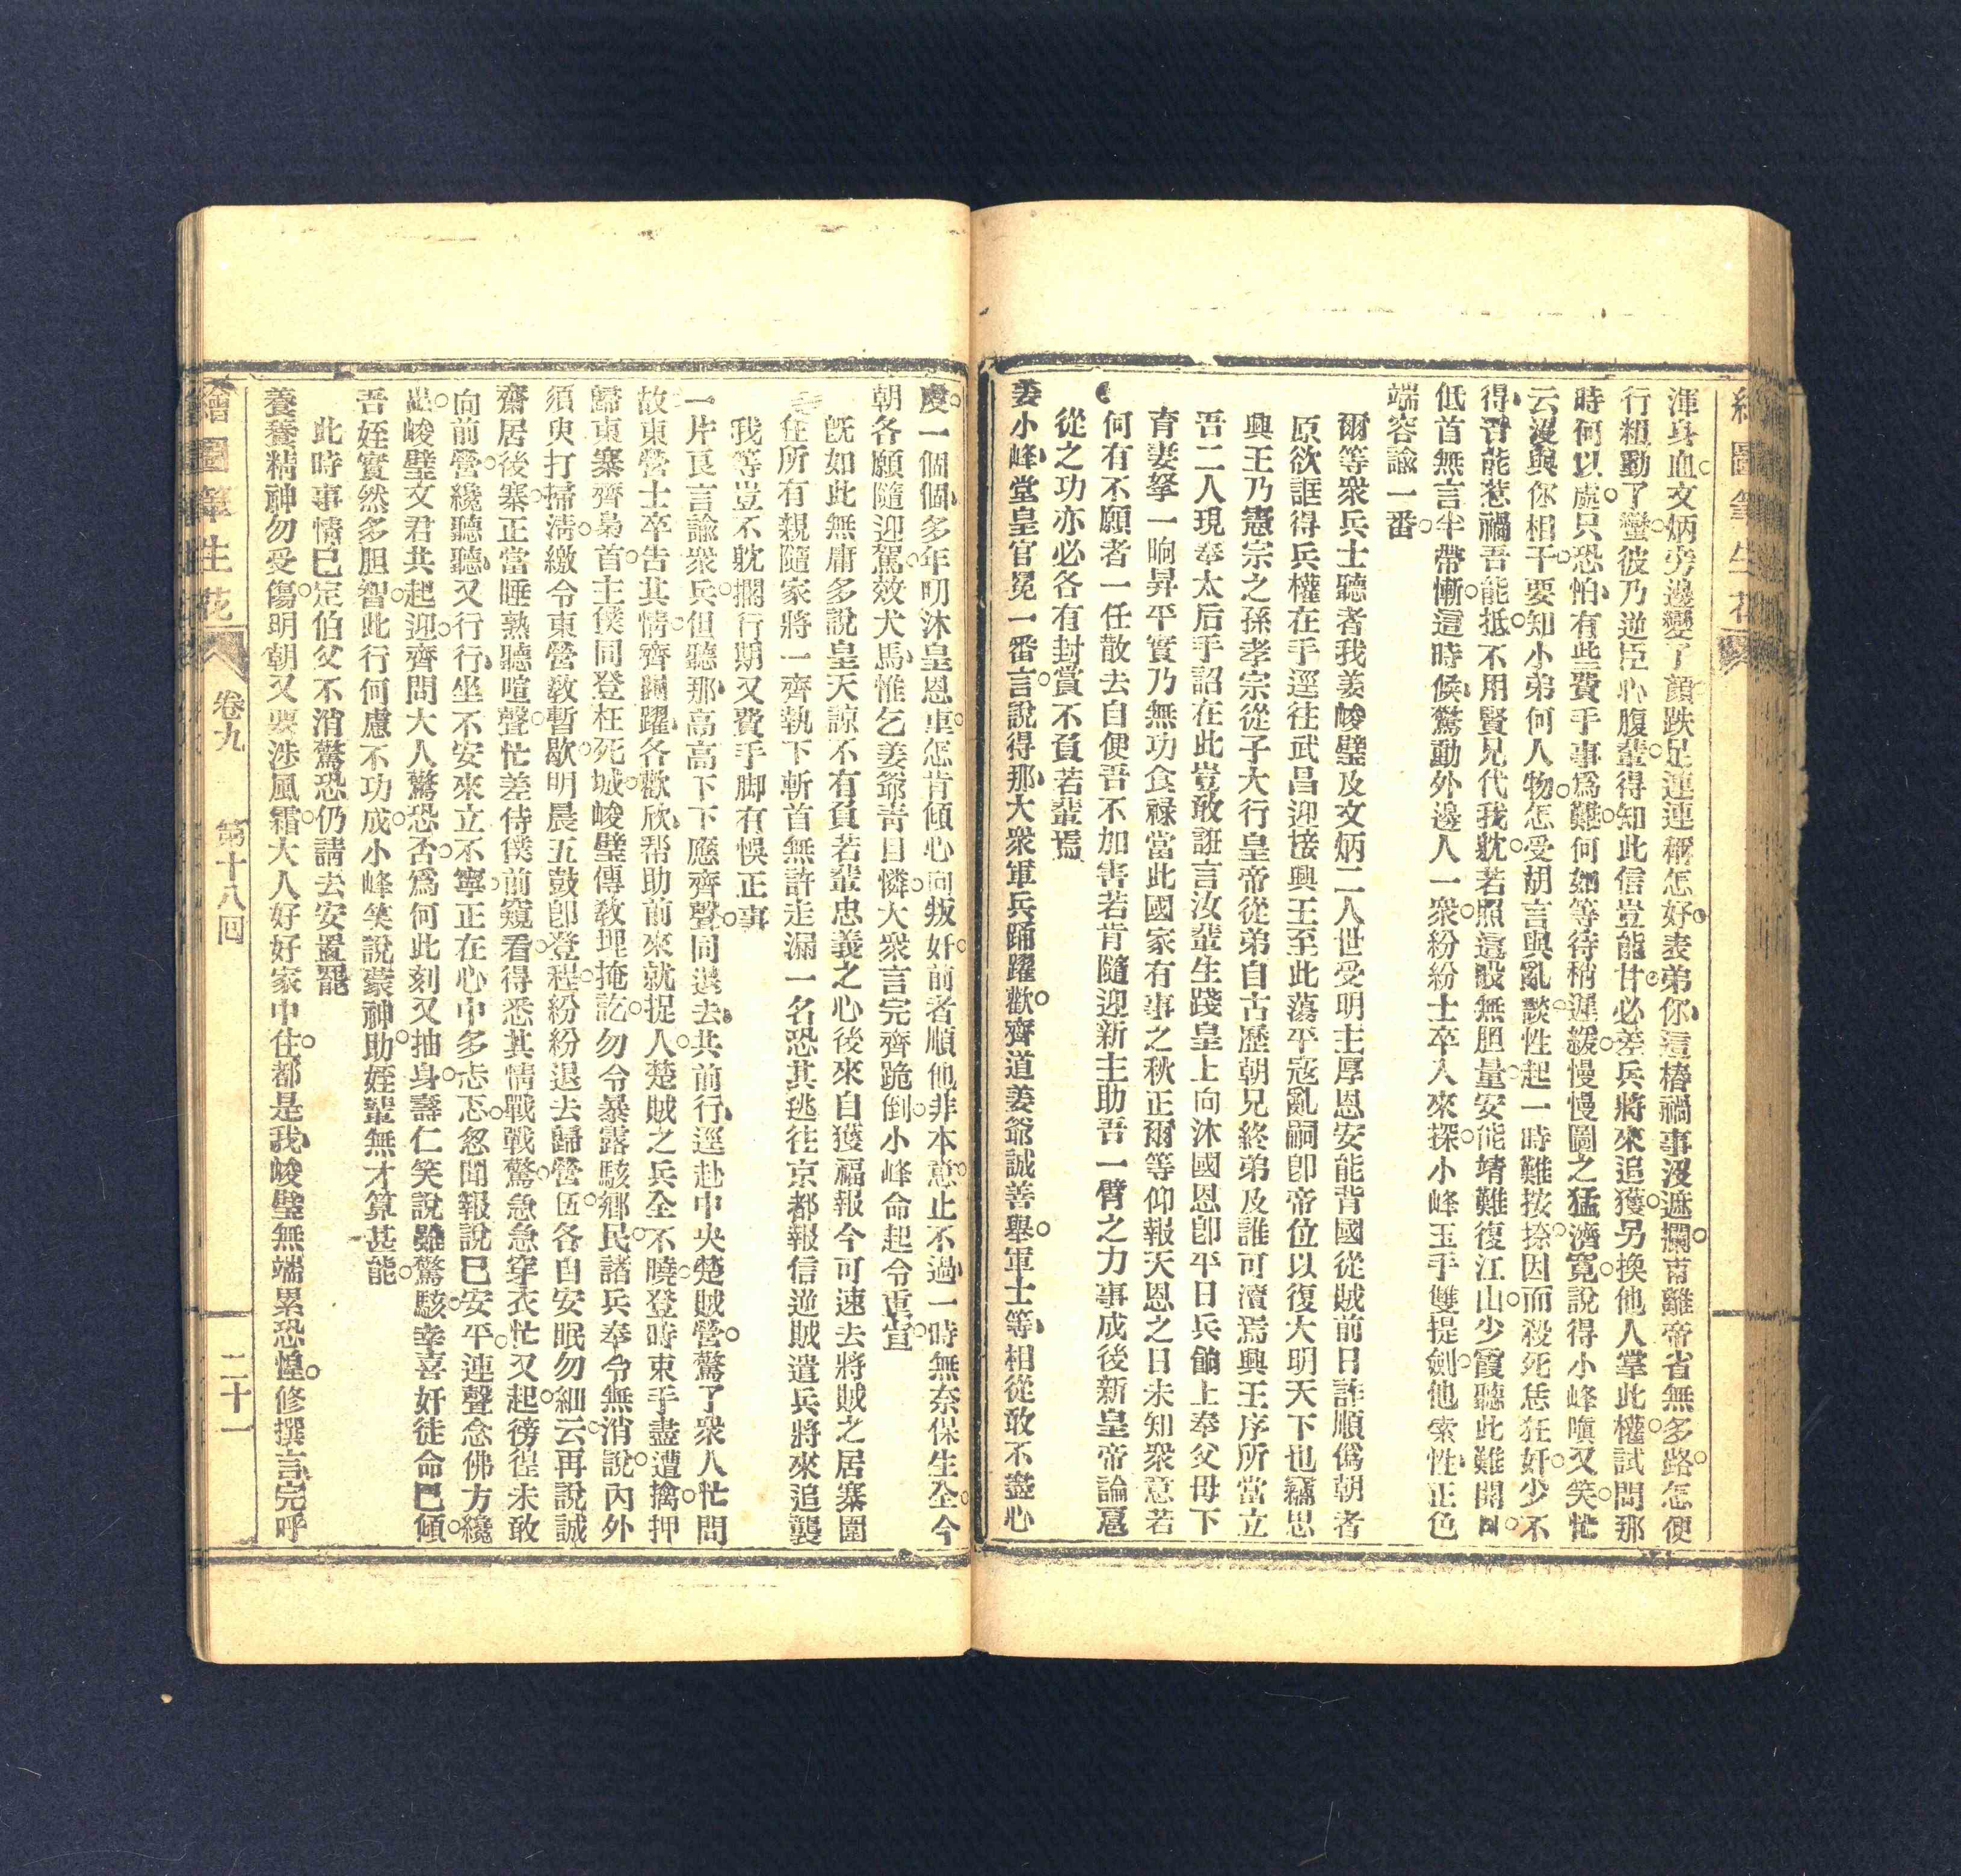 渾身血文炳旁邊變了顏跌足連連稱怎好表弟你這樁禍事沒遮攔南雖帝省無多路怎便
行粗動了蠻彼乃逆臣心腹輩得知此信豈能甘必差兵將來追獲另換他人掌此權試問那
時何以處只恐怕有些費手事爲難何如等待稍遲緩慢慢圖之猛濟寬說得小峰嗔又笑忙
云沒與你相干要知小弟何人物怎受胡言與亂談性起一時難按捺因而殺死恁狂奸少不
得吾能惹禍吾能抵不用賢兄代我躭若照這般無胆量安能靖難復江山少霞聽此難開口
低首無言半帶慚這時候驚動外邊人一衆紛紛士卒入來探小峰玉手雙提劍他索性正色
端容諭一番
爾等衆兵士聽者我姜峻璧及文炳二人世受明主厚恩安能背國從賊前日詐順僞朝者
原欲誆得兵權在手逕往武昌迎接興王至此蕩平寇亂嗣卽帝位以復大明天下也竊思
興王乃憲宗之孫孝宗從子大行皇帝從弟自古歷朝兄終弟及誰可瀆焉興王序所當立
吾二人現奉太后手詔在此豈敢誑言汝輩生踐皇上向沐國恩卽平日兵餉上奉父母下
育妻孥一晌昇平實乃無功食祿當此國家有事之秋正爾等仰報天恩之日未知衆意若
何有不願者一任散去自便吾不加害若肯隨迎新主助吾一臂之力事成後新皇帝論扈
從之功亦必各有封賞不負若輩焉
姜小峰堂皇官冕一番言說得那大衆軍兵踊躍歡齊道姜爺誠善舉軍士等相從敢不盡心
虔一個個多年明沐皇恩重怎肯傾心向叛奸前者順他非本意止不過一時無奈保生全今
朝各願隨迎駕效犬馬惟乞姜爺靑目憐大衆言完齊跪倒小峰命起令重宣
旣如此無庸多說皇天諒不有負若輩忠義之心後來自獲福報今可速去將賊之居寨圍
住所有親隨家將一齊執下斬首無許走漏一名恐其逃往京都報信逆賊遣兵將來追襲
我等豈不躭擱行期又費手脚有悞正事
一片良言諭衆兵但聽那高高下下應齊聲同退去共前行逕赴中央楚賊營驚了衆人忙問
故東營士卒告其情齊踴躍各歡欣帮助前來就捉人楚賊之兵全不曉登時束手盡遭擒押
歸東寨齊梟首主僕同登枉死城峻璧傳敎埋掩訖勿令暴露駭鄉民諸兵奉令無消說內外
須臾打掃淸繳令東營敎暫歇明晨五鼓卽登程紛紛退去歸營伍各自安眠勿細云再說誠
齋居後寨正當睡熟聽喧聲忙差侍僕前窺看得悉其情戰戰驚急急穿衣忙又起徬徨未敢
向前營纔聽聽又行行坐不安來立不寧正在心中多忐忑忽聞報說已安平連聲念佛方纔
出峻璧文君共起迎齊問大人驚恐否爲何此刻又抽身壽仁笑說雖驚駭幸喜奸徒命已傾
吾姪實然多胆智此行何慮不功成小峰笑說蒙神助姪輩無才算甚能
此時事情已定伯父不消驚恐仍請去安置罷
養養精神勿受傷明朝又要涉風霜大人好好家中住都是我峻璧無端累恐惶修撰言完呼
繪圖筆生花
卷九
第十八回
二十一